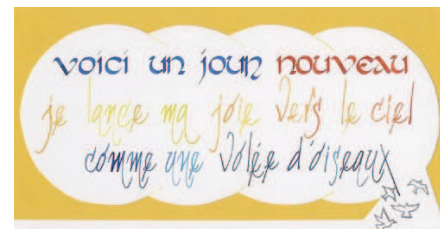 voici un jour nouveau
je lance ma joie vers le ciel
comme une volée d'oiseaux